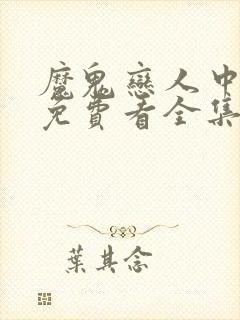 魔鬼戀人中
免費看全集
葉其念